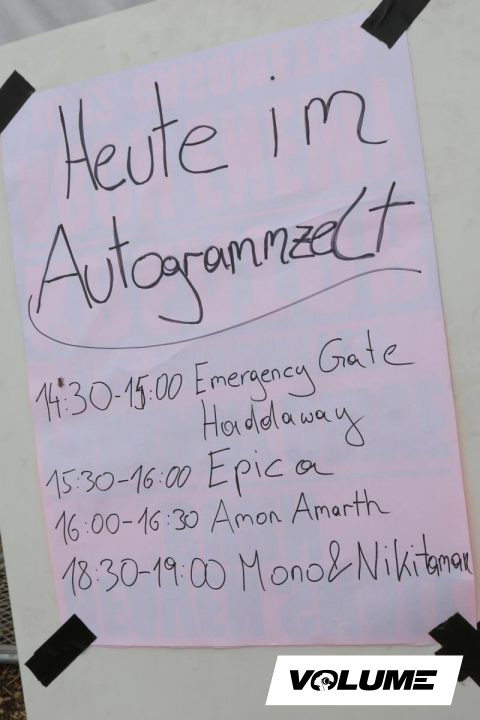 Heute im
Autogrammzelt
14:30-15:00 Emergency Gate
Haddaway
15:30-16:00 Epica
16:00-16:30 Amon Amarth
18:30-19:00 Mono & Nikitaman
VOLUME